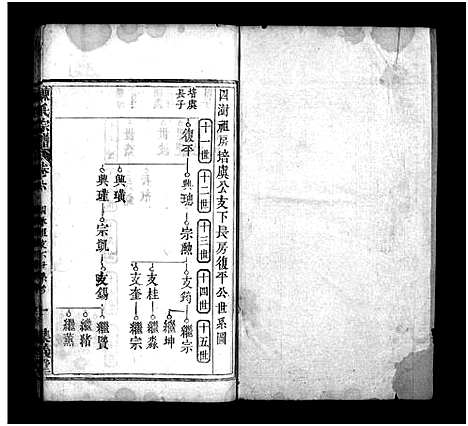 四澍祖房培虞公支下長房復平公世系圖
十一世
十二世
十三世
十四世
十五世
培虞
長子
復平
興璁
宗勲
支筠
繼宗
繼坤
支桂
繼淼
支奎
繼宗
興璜
興瑾
宗凱
支錫
繼賢
繼緒
繼薰